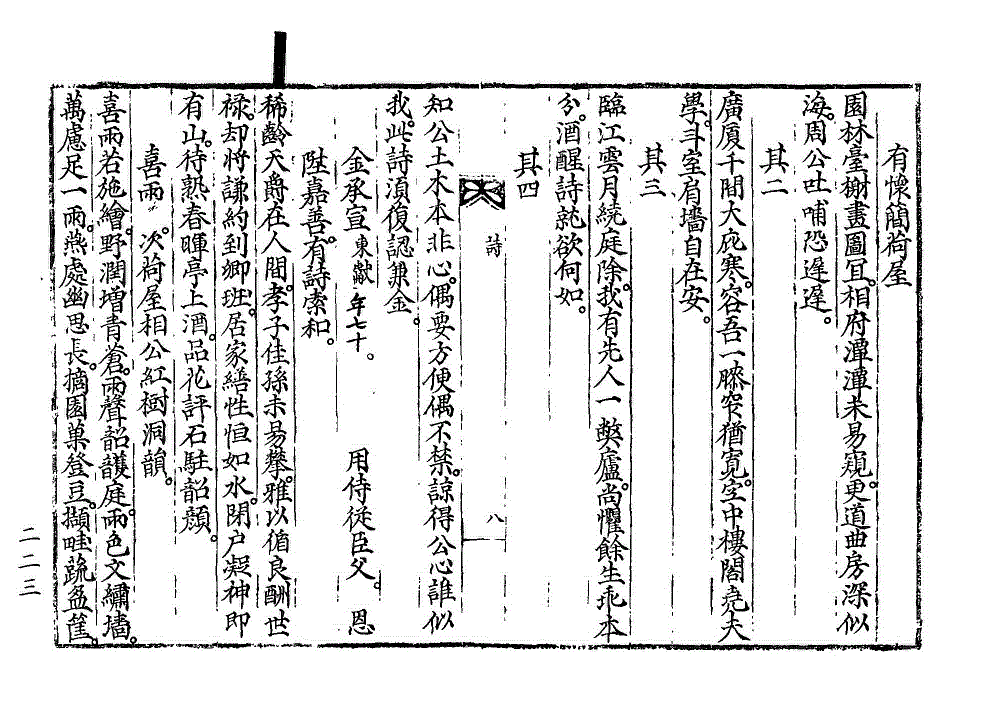 有懷簡荷屋
園林臺榭畫圖宜。相府潭潭未易窺。更道曲房深似
海。周公吐哺恐遲遲。
其二
廣厦千間大庇寒。容吾一膝窄猶寛。空中樓閣堯夫
學。斗室肩墻自在安。
其三
臨江雲月繞庭除。我有先人一弊廬。尚懼餘生乖本
分。酒醒詩就欲何如。
其四
知公土木本非心。偶要方便偶不禁。諒得公心誰似
我。此詩湏復認兼金。
詩
八
金承宣東獻年七十。用侍從臣父。恩
陞嘉善。有詩索和。
稀齡天爵在人間。孝子佳孫未易攀。雅以循良酬世
禄。却將謙約到卿班。居家繕性恒如水。閉户凝神即
有山。待熟春暉亭上酒。品花評石駐韶顔。
喜雨。次荷屋相公紅樹洞韻。
喜雨若施繪。野潤增青蒼。雨聲韶頀庭。雨色文繡墻。
萬慮足一雨。燕處幽思長。摘園菓登豆。擷畦蔬盈筐。
二二三